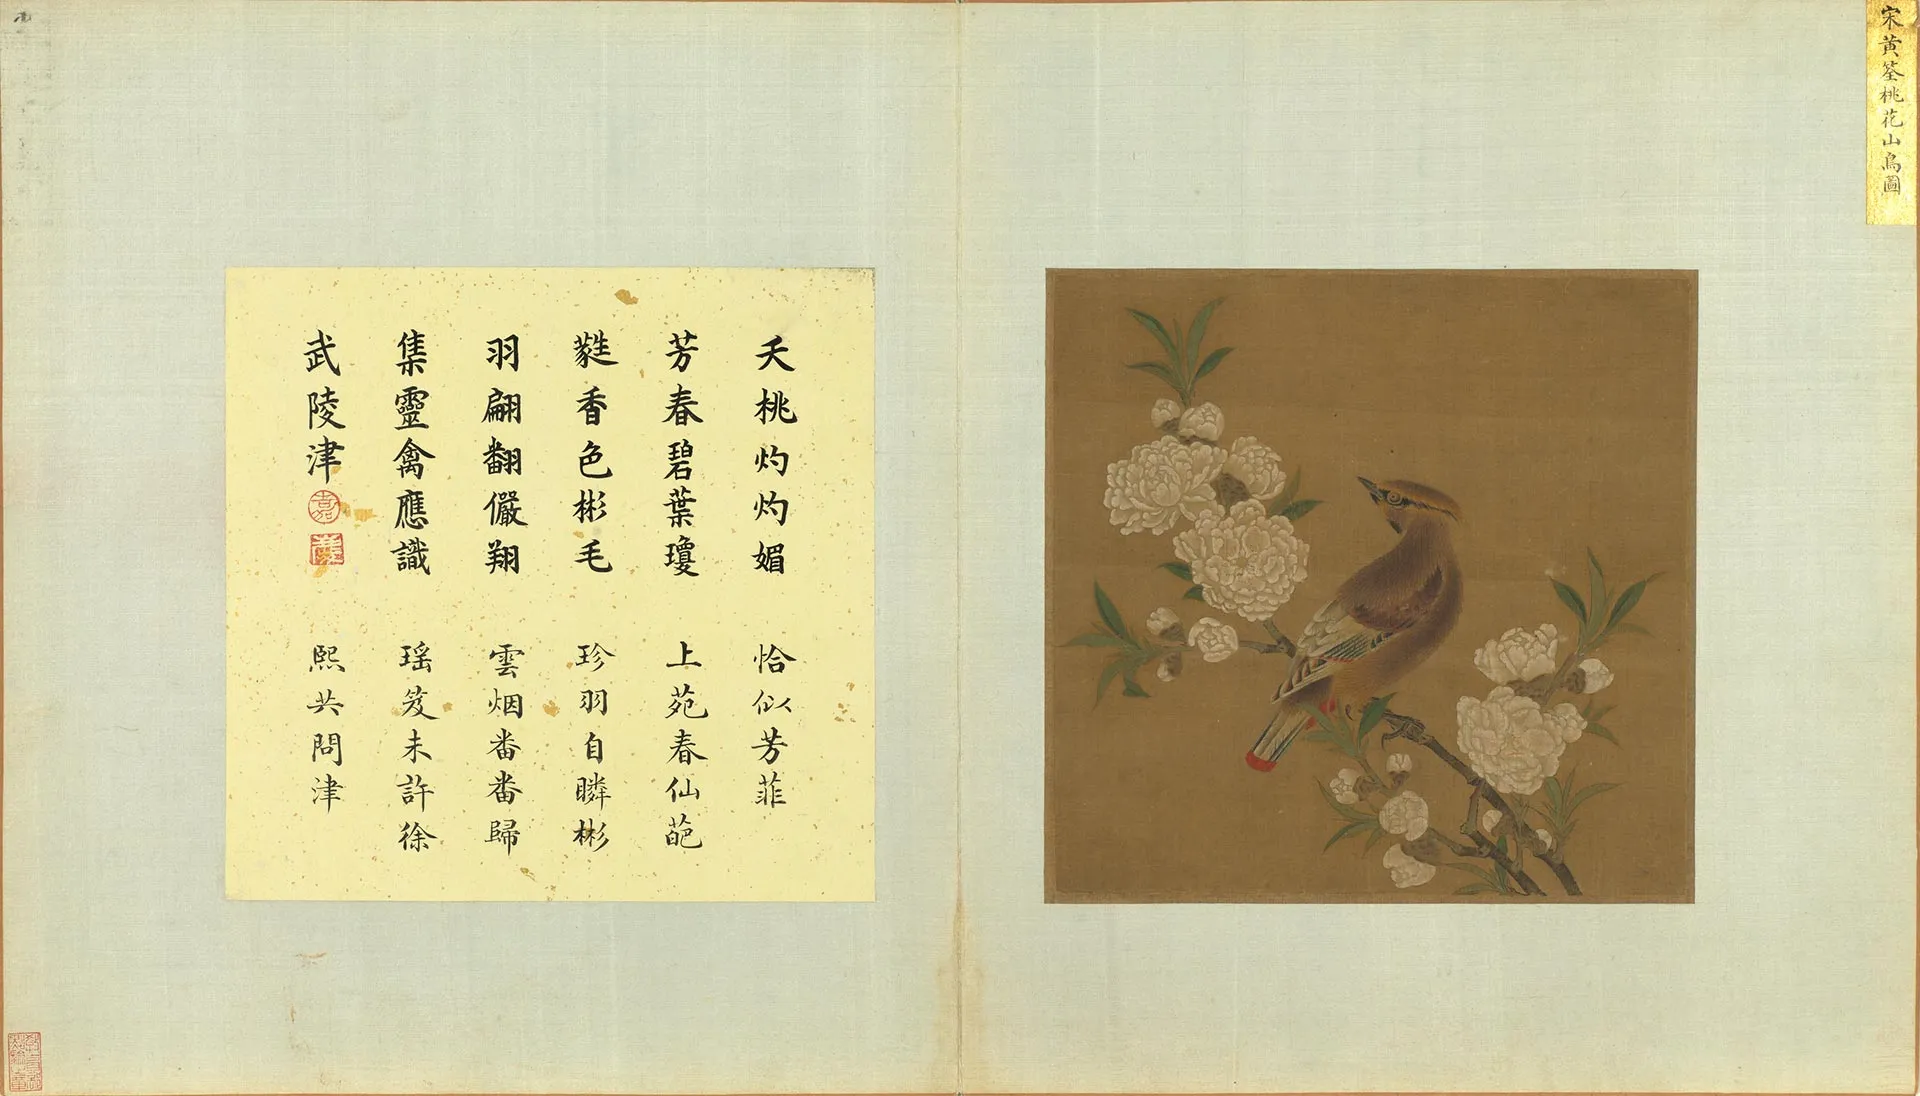 宋黃筌桃花山鳥圖
夭桃灼灼媚
芳春碧葉瓊
蕤香色彬毛
羽翩翻儼翔
集靈禽應識
武陵津
嘉
恰似芳菲
上苑春仙葩
珍羽自璘彬
雲烟畨畨歸
瑤笈未許徐
熙共問津